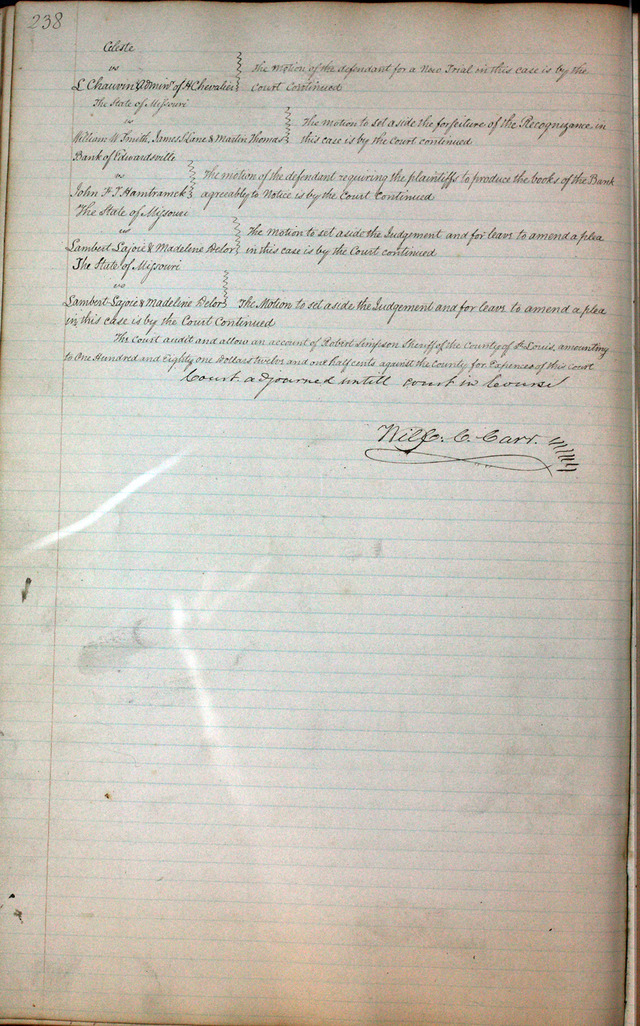 238
Celeste
vs
L Chauvin Admin.r of H Chevalier
The Motion of the defendant for a New Trial in this case is by the
Court Continued
The State of Missouri
vs
William W Smith, James Lane & Martin Thomas
The motion to set aside the forfeiture of the Recognizance in
this case is by the Court continued
Bank of Edwardsville
vs
John F. Hamtramck
The motion of the defendant requiring the plaintiffs to produce the books of the Bank
agreeably to Notice is by the Court Continued
The State of Missouri
vs
Lambert Lajoie & Madeline Delor
The Motion to set aside the Judgement and for leave to amend a plea
in this case is by the Court continued
The State of Missouri
vs
Lambert Lajoie & Madeline Delor
The Motion to set aside the Judgement and for leave to amend a plea
in this case is by the Court Continued
The Court audit and allow an account of Robert Simpson Sheriff of the County of St. Louis, amounting
to One Hundred and Eighty one Dollars twelve and one half cents against the County for Expences of this court
Court adjourned untill court in Course
C. Carr.